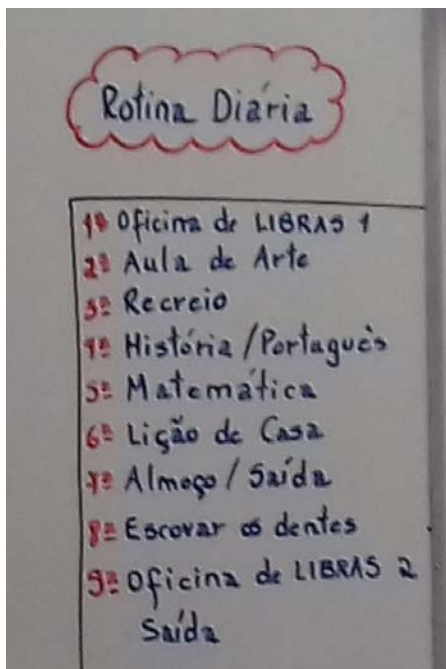 Rotina Diária
1º Oficina de LIBRAS 1
2º Aula de Arte
3º Recreio
4º História / Português
5º Matemática
6º Lição de Casa
7º Almoço / Saída
8º Escovar os dentes
9º Oficina de LIBRAS 2
Saída